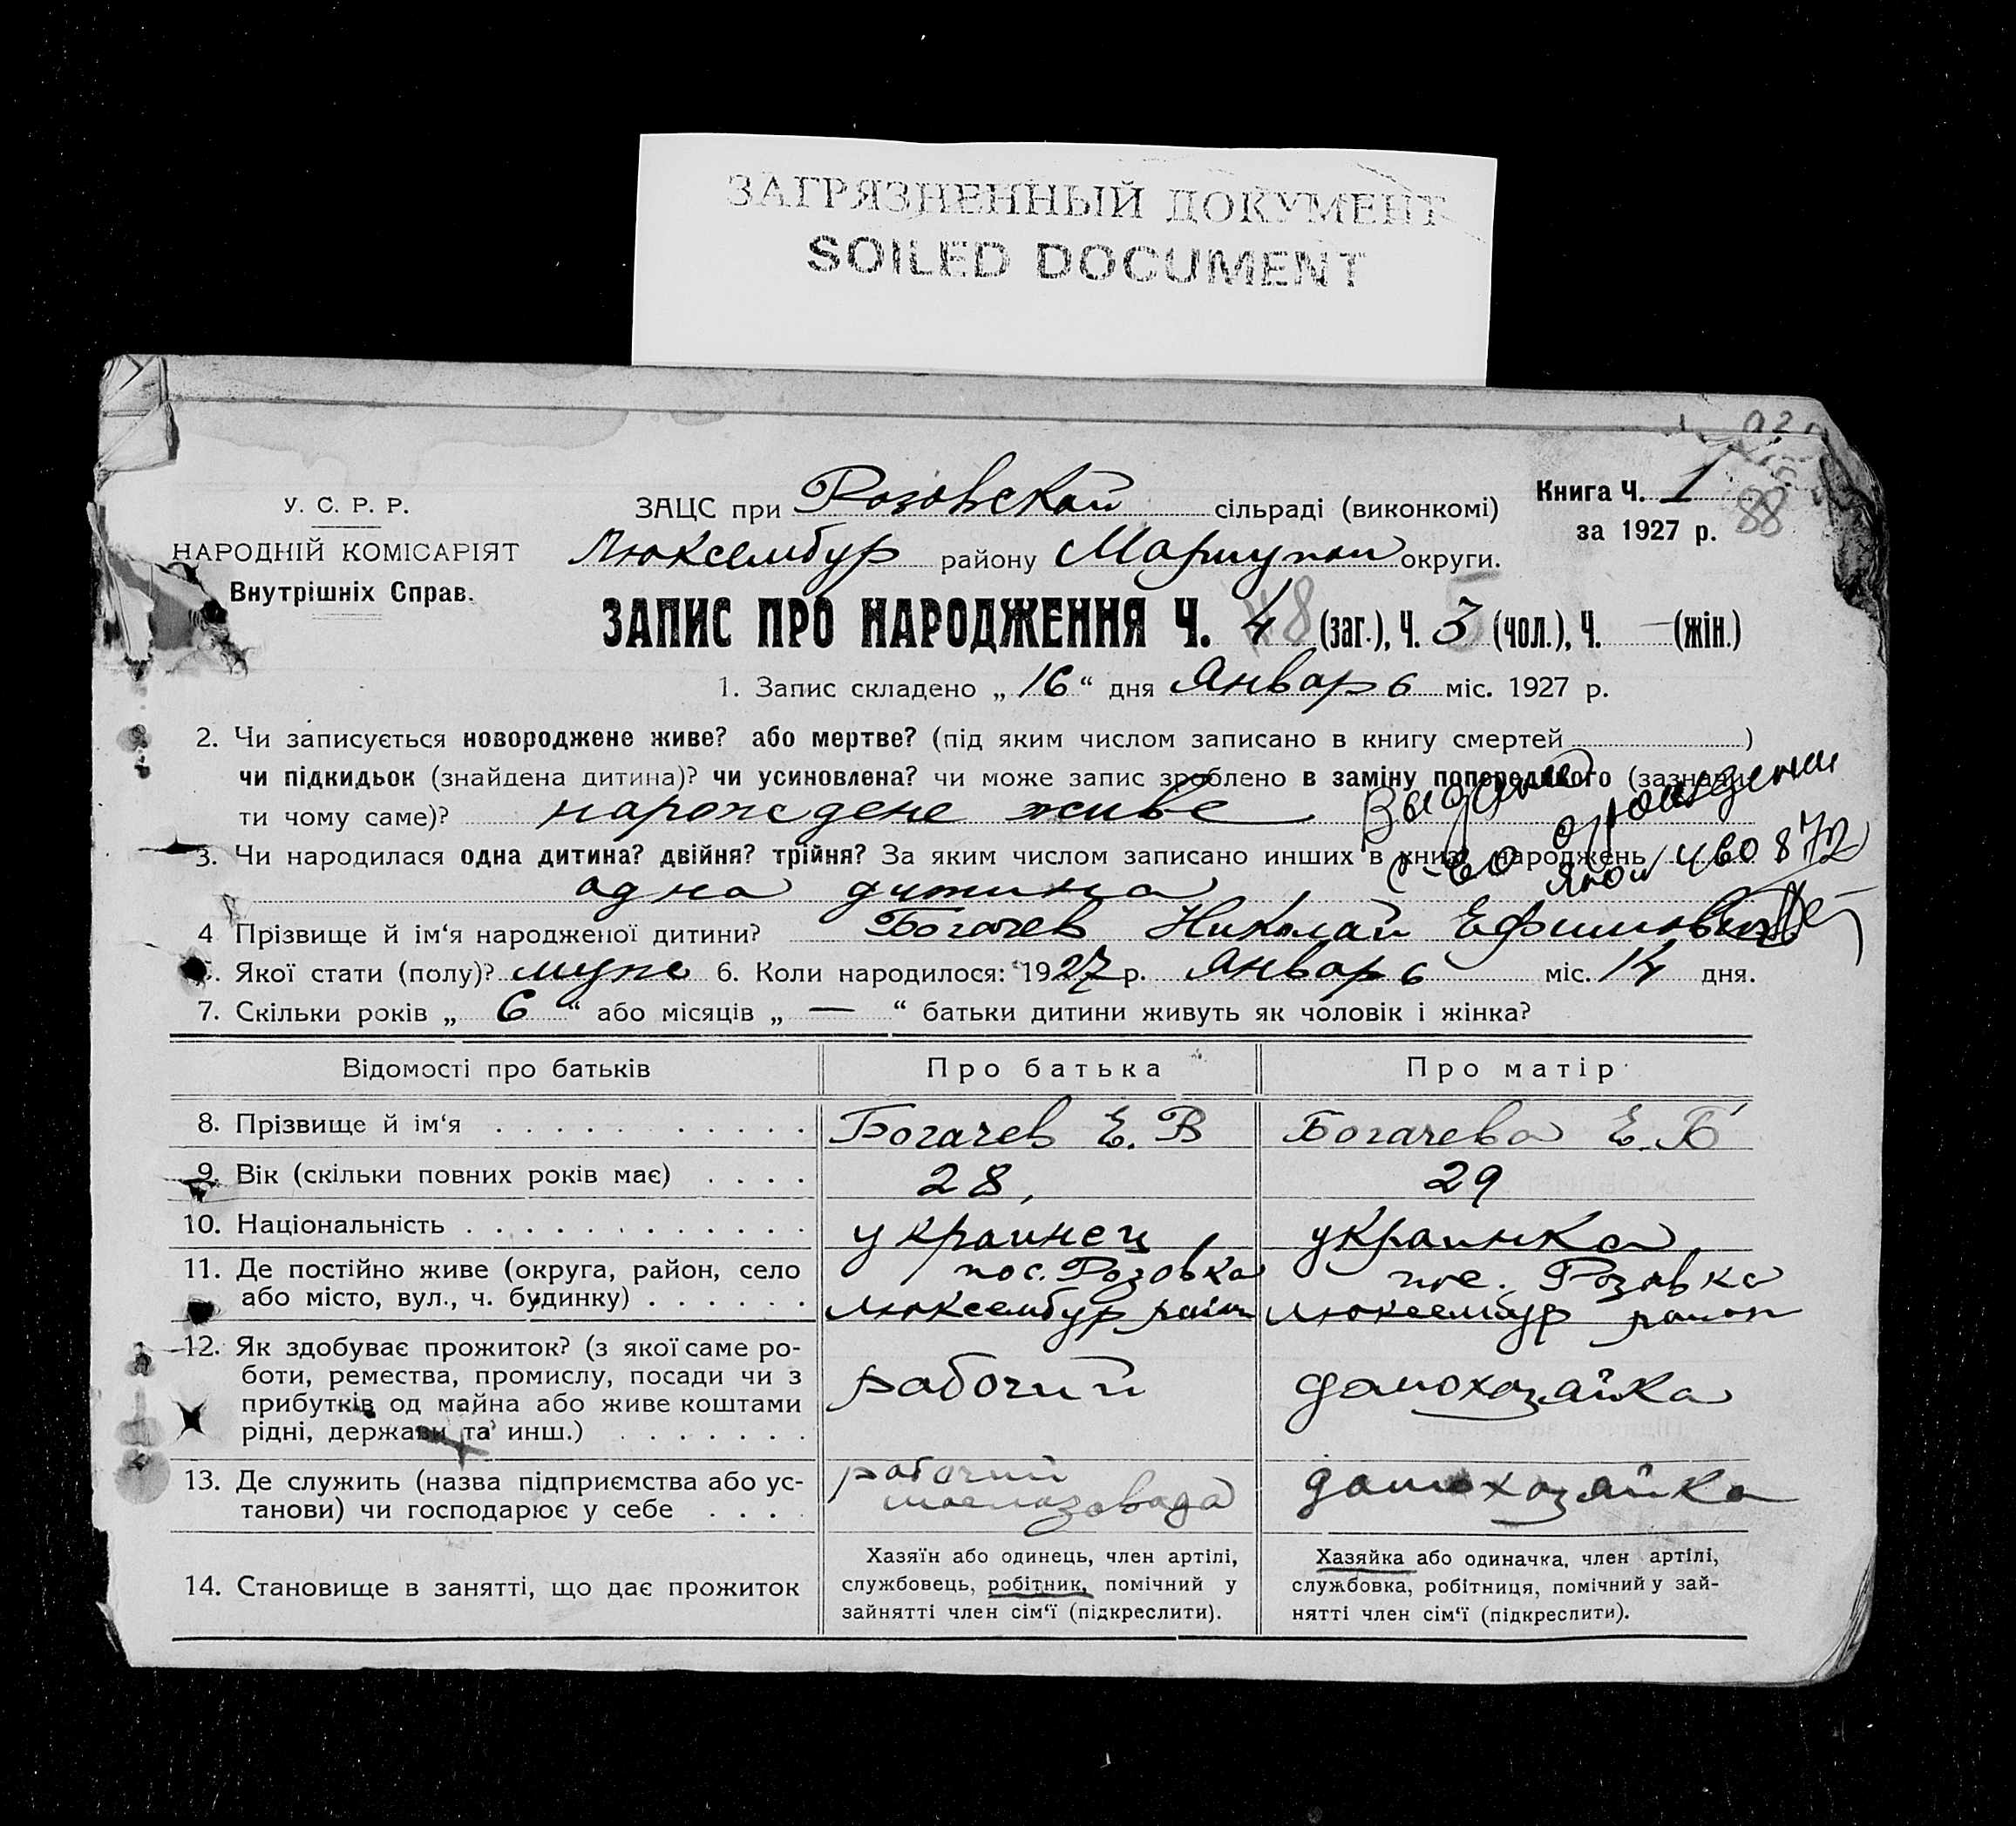 ЗАГРЯЗНЕННЫЙ ДОКУМЕНТ
SOILED DOCUMENT
У. С. Р. Р.
НАРОДНІЙ КОМІСАРІЯТ
Внутрішніх Справ.
ЗАЦС при Розовской сільраді (виконкомі)
Люксембур району Мариупол округи.
Книга Ч. 1
за 1927 р.
88
ЗАПИС ПРО НАРОДЖЕННЯ Ч. 4 (заг.), Ч. 3 (чол.), Ч. — (жін.)
1. Запис складено „ 16 “ дня Январ б міс. 1927 р.
2. Чи записується новороджене живе? або мертве? (під яким числом записано в книгу смертей )
чи підкидьок (знайдена дитина)? чи усиновлена? чи може запис зроблено в заміну попереднього (зазначи-
ти чому саме)? нарождене живе
Выдано
о рождении
3. Чи народилася одна дитина? двійня? трійня? За яким числом записано инших в книзі народжень
одна дитина
4 Прізвище й ім‘я народженої дитини? Богачев Николай Ефимович
5. Якої стати (полу)? муж 6. Коли народилося: 1927 р. Январ б міс. 14 дня.
7. Скільки років „ 6 “ або місяців „ — “ батьки дитини живуть як чоловік і жінка?
Відомості про батьків Про батька Про матір
8. Прізвище й ім‘я Богачев Е. В Богачева Е. Б
9. Вік (скільки повних років має) 28, 29
10. Національність украинец украинка
11. Де постійно живе (округа, район, село пос. Розовка пос. Розовка
або місто, вул., ч. будинку) Люксембур район Люксембур район
12. Як здобуває прожиток? (з якої саме ро-
боти, ремества, промислу, посади чи з рабочий домохозайка
прибутків од майна або живе коштами
рідні, держави та инш.)
13. Де служить (назва підприємства або ус- рабочий домохозайка
танови) чи господарює у себе маслозавода
14. Становище в занятті, що дає прожиток
Хазяїн або одинець, член артілі,
службовець, робітник, помічний у
зайнятті член сім‘ї (підкреслити).
Хазяйка або одиначка, член артілі,
службовка, робітниця, помічний у зай-
нятті член сім‘ї (підкреслити).